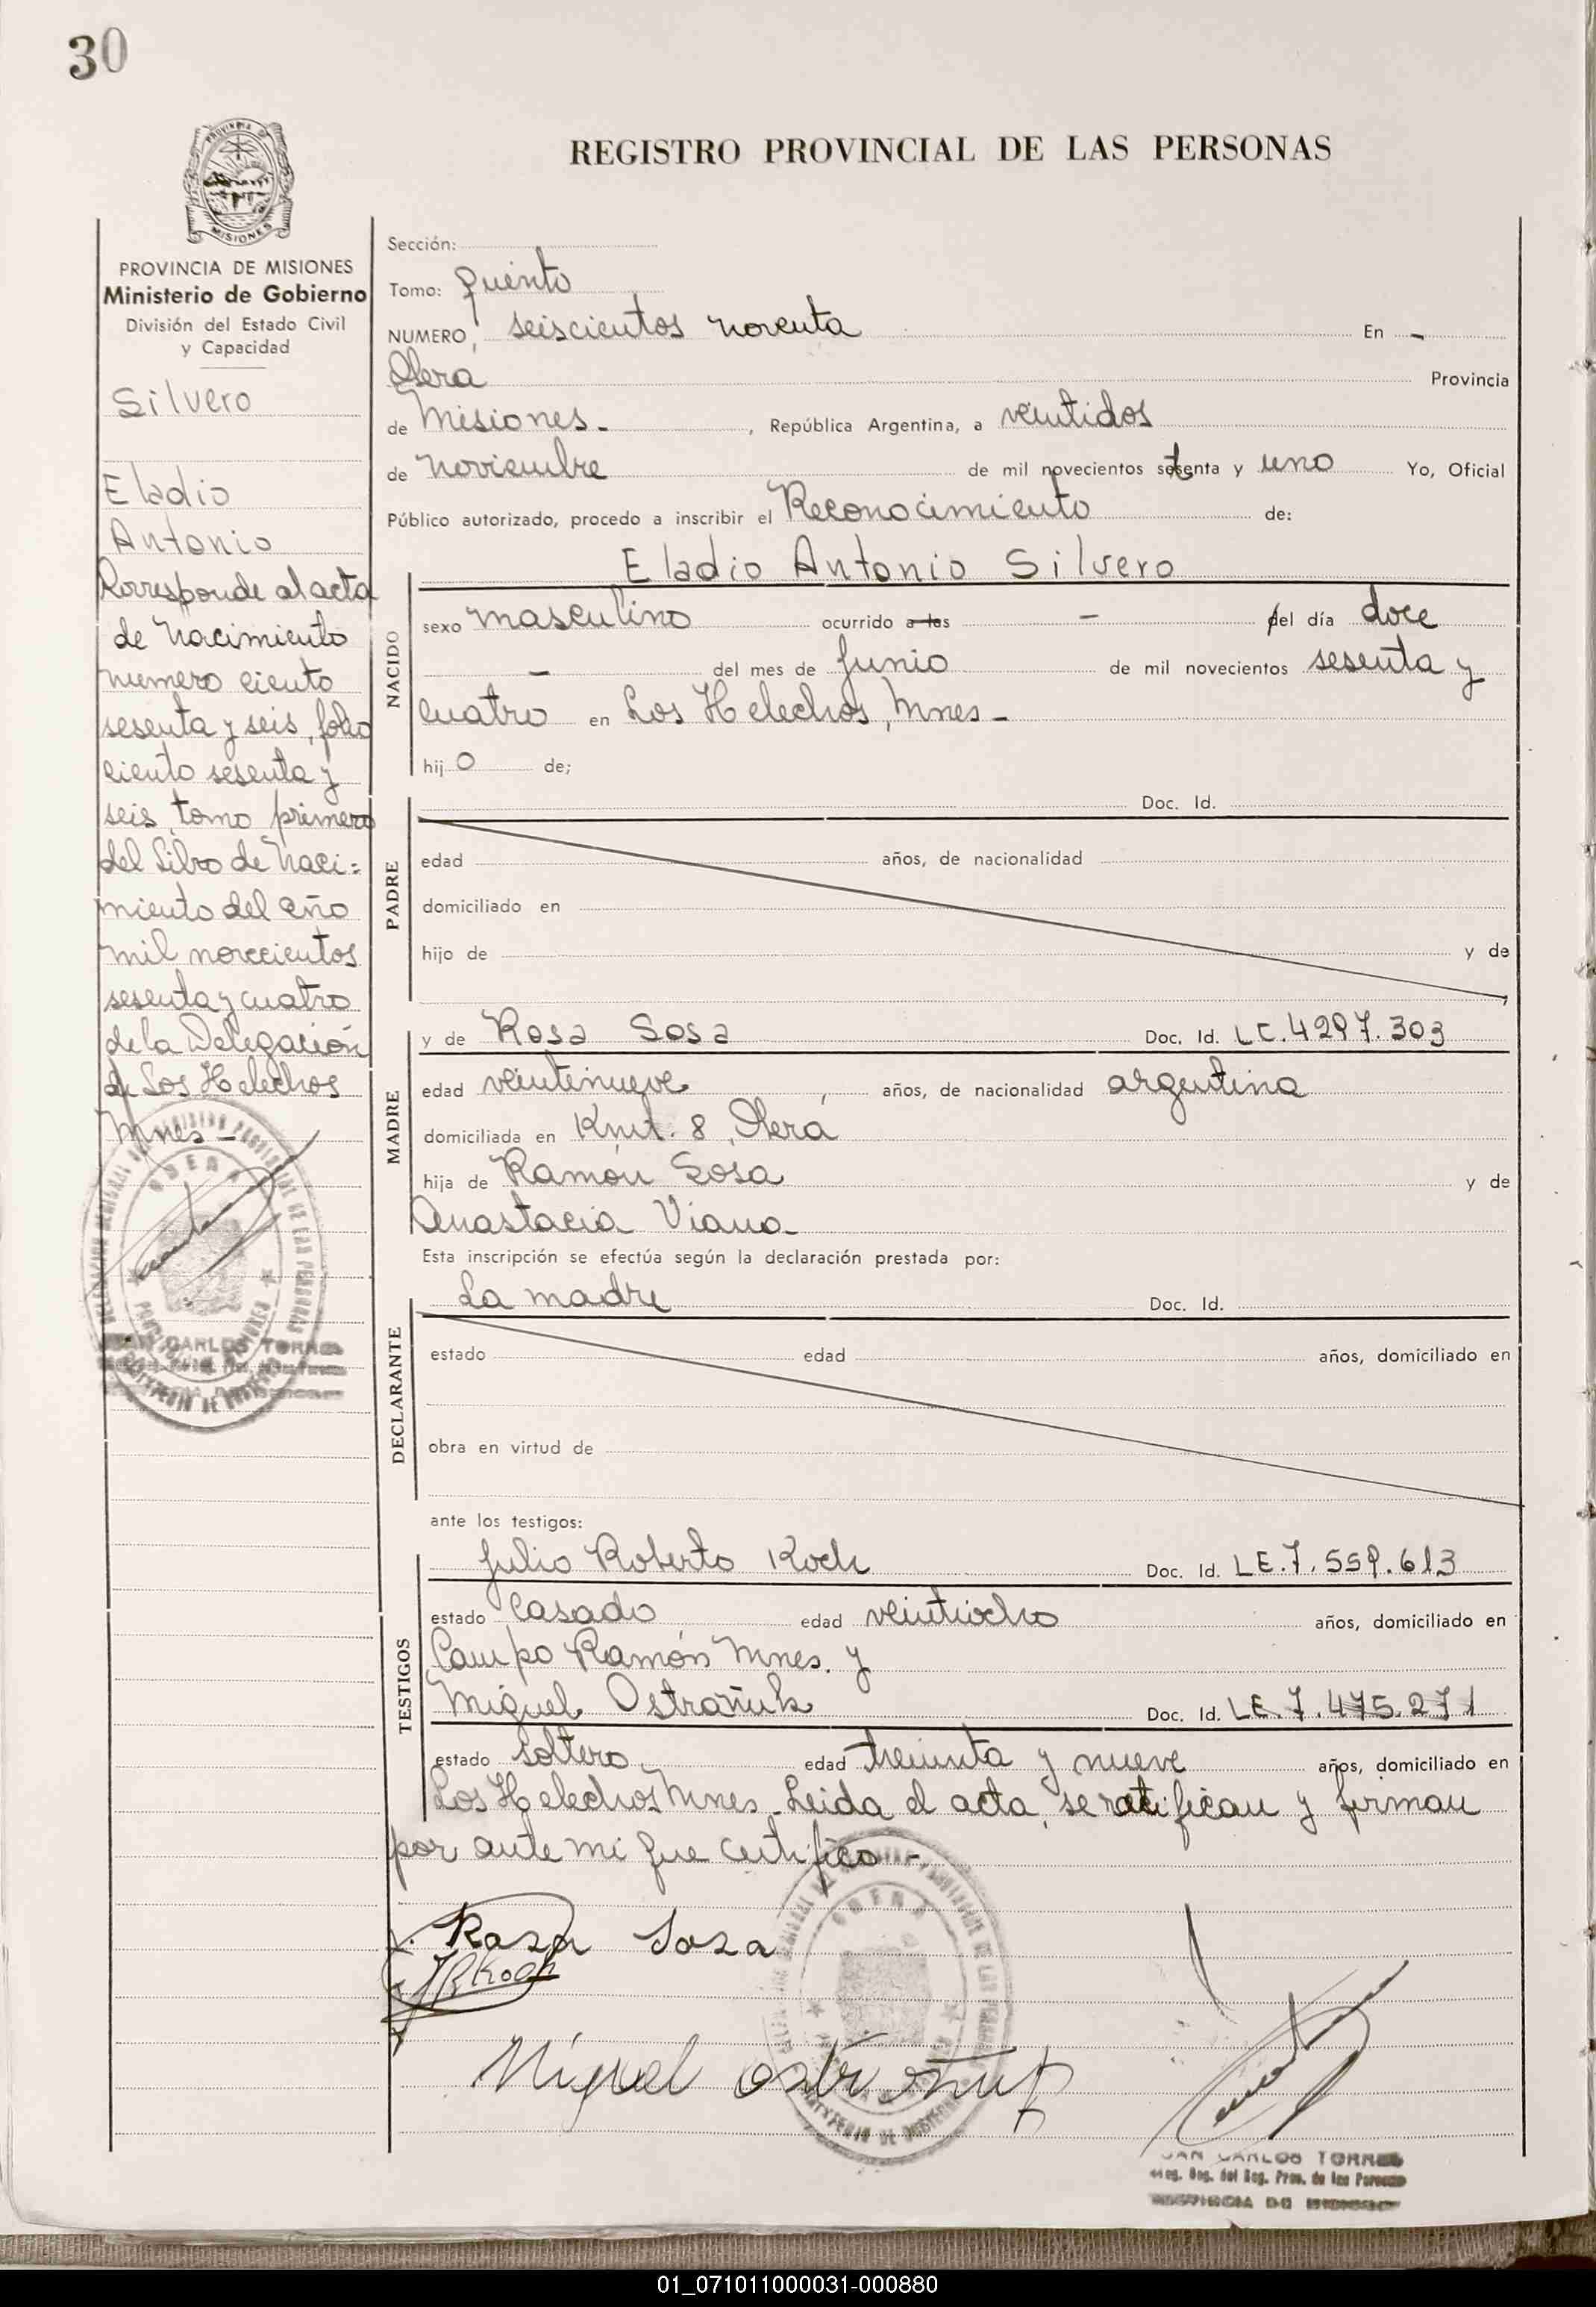 30
REGISTRO PROVINCIAL DE LAS PERSONAS
PROVINCIA DE MISIONES
Ministerio de Gobierno
División del Estado Civil
y Capacidad
Silvero
Eladio
Antonio
Corresponde al acta
de Nacimiento
numero ciento
sesenta y seis, folio
ciento sesenta y
seis, tomo primero
del Libro de Naci=
miento del año
mil novecientos
sesenta y cuatro
de la Delegación
de Los Helechos
Mnes-
Sección:
Tomo: Quinto
NUMERO, seiscientos noventa En -
Obera Provincia
de Misiones-, República Argentina, a veintidos
de Noviembre de mil novecientos setenta y uno Yo, Oficial
Público autorizado, procedo a inscribir el Reconocimiento de:
NACIDO
Eladio Antonio Silvero
sexo masculino ocurrido a las - del día doce
- del mes de Junio de mil novecientos sesenta y
cuatro en Los Helechos, Mnes-
hij o de;
PADRE
Doc. Id.
edad años, de nacionalidad
domiciliado en
hijo de y de
MADRE
y de Rosa Sosa Doc. Id. LC.4297.303
edad veintinueve, años, de nacionalidad argentina
domiciliada en Kmt. 8, Oberá
hija de Ramón Sosa y de
Anastacia Viana
Esta inscripción se efectúa según la declaración prestada por:
DECLARANTE
La madre Doc. Id.
estado edad años, domiciliado en
obra en virtud de
ante los testigos:
TESTIGOS
Julio Roberto Koch Doc. Id. LE.7.559.613
estado Casado edad veintiocho años, domiciliado en
Campo Ramón Mnes. y
Miguel Ostrañuk Doc. Id. LE.7.475.271
estado soltero, edad treinta y nueve años, domiciliado en
Los Helechos Mnes-Leida el acta, se ratifican y firman
por ante mi que certifico-
Rosa Sosa
JRKoch
Miguel
JUAN CARLOS TORRES
01_071011000031-000880